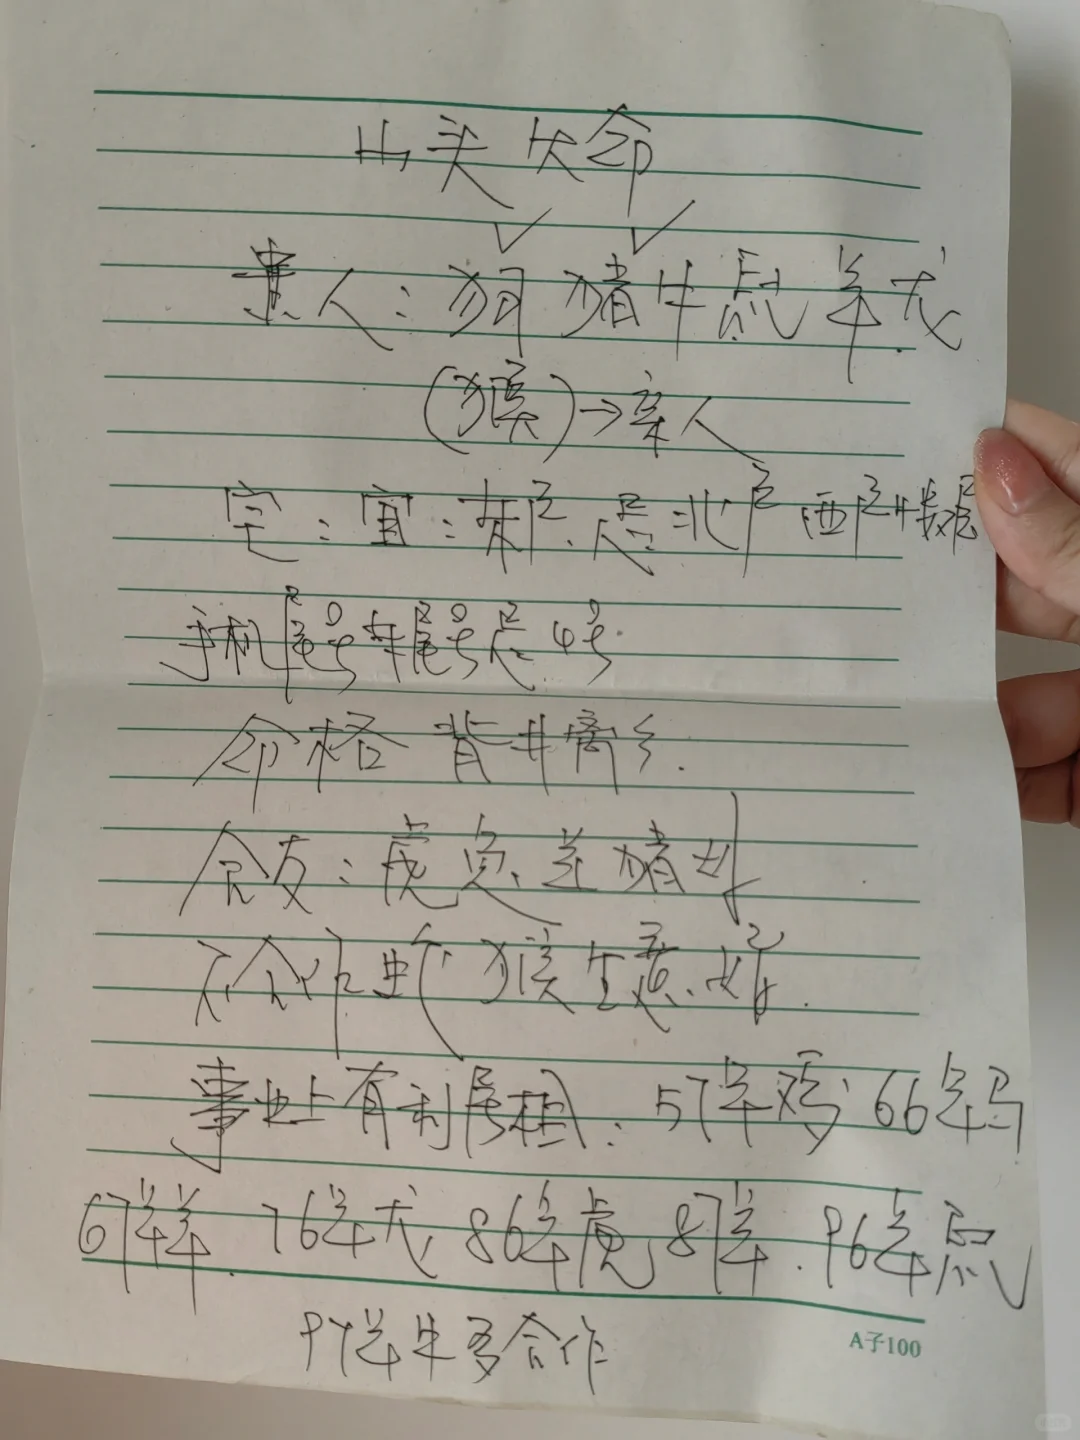 山头火命
贵人：狗 猪牛鼠羊龙
(猴)→亲人
宅：宜：东门、忌：北门 西门 楼层
手机尾号车尾号忌 4号
命格 背井离乡.
合友：虎兔、羊猪
不合作蛇 猴生意
事业上有利属相：57年鸡 66年马
67年羊. 76年龙 86年虎 87年. 96年鼠
97年牛多合作
A子100